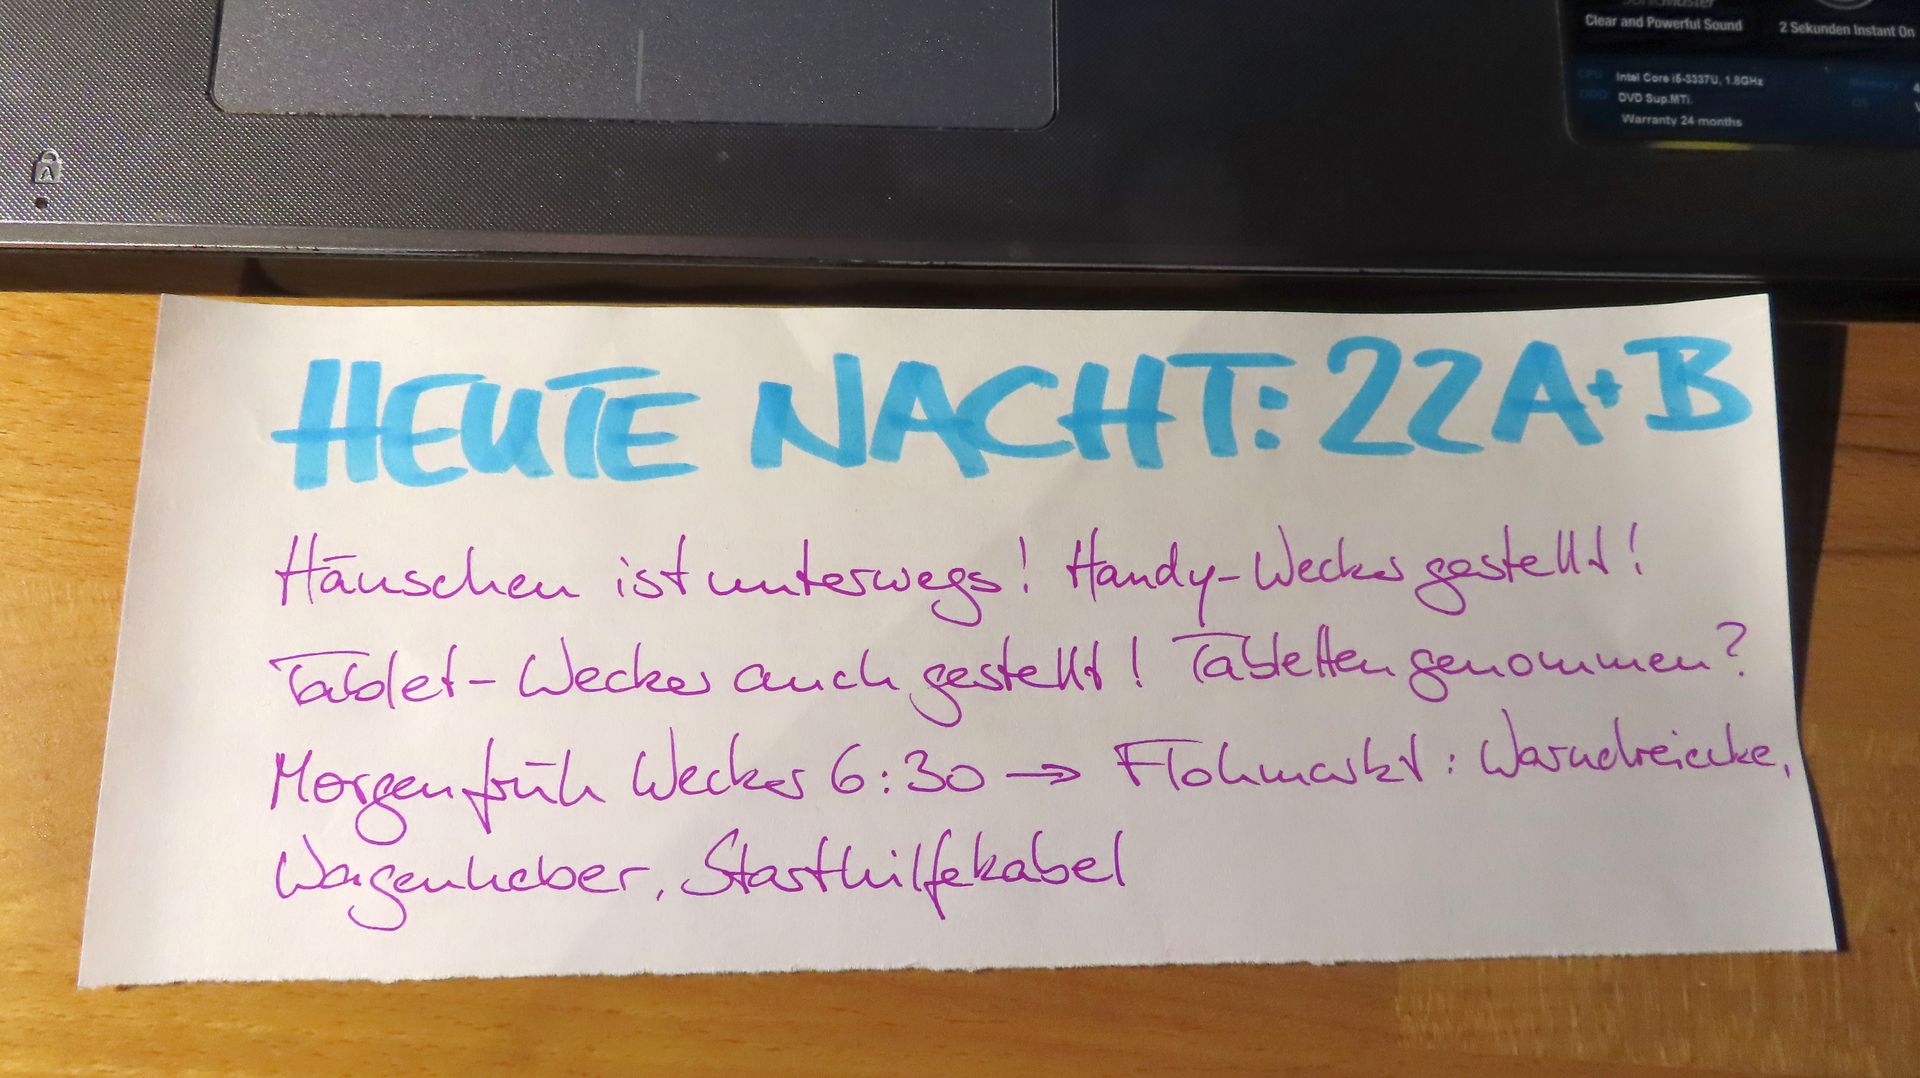 Clear and Powerful Sound
2 Sekunden Instant On
CPU Intel Core i5-3337U, 1.8GHz
ODD DVD Sup.MTi.
Warranty 24 months
HEUTE NACHT: 22A+B
Häuschen ist unterwegs! Handy-Wecker gestellt!
Tablet-Wecker auch gestellt! Tabletten genommen?
Morgen früh Wecker 6:30 → Flohmarkt: Warndreiecke,
Wagenheber, Starthilfekabel